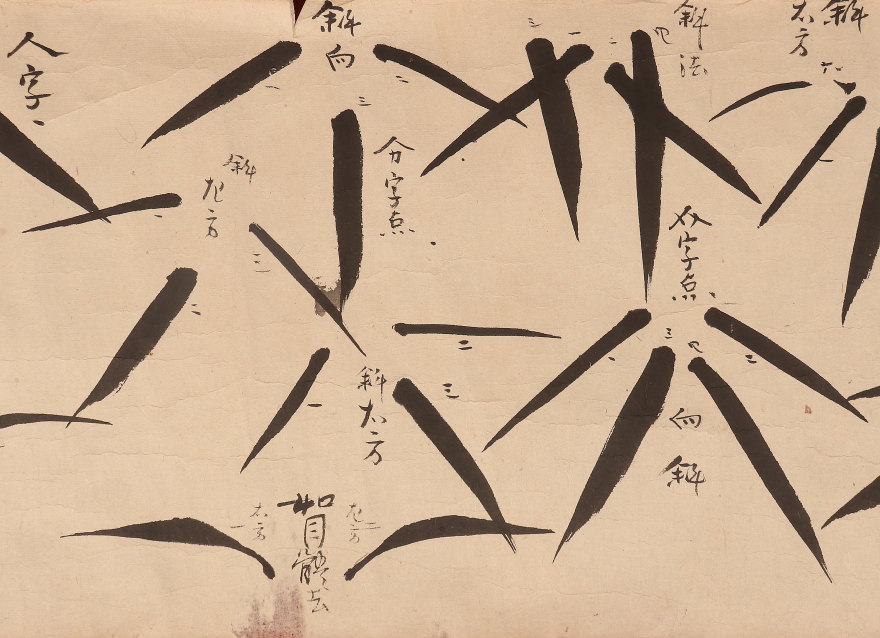 斜
右方
斜法
四
二
一
三
字点
一
二
三
四
向斜
斜向
一
二
三
分字点
一
二
三
斜右方
斜左方
人字
一
二
左方
二
右方
一